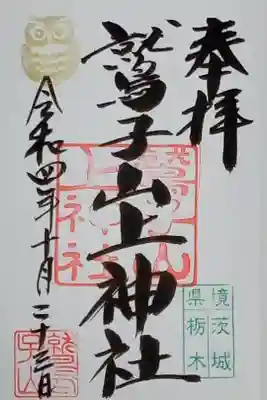 奉拝
鷲子山上神社
令和四年十月二十三日
境 茨城
県 栃木
鷲子山